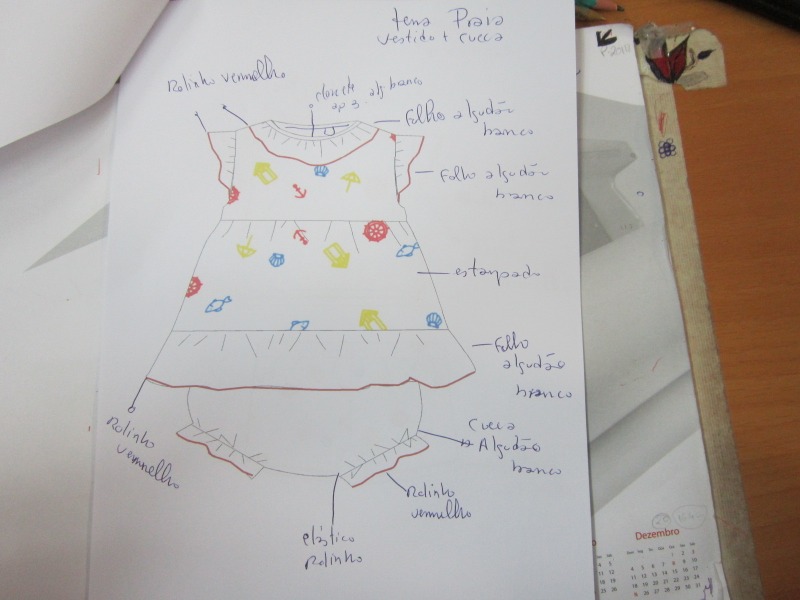 tema Praia
Vestido + cueca
Rolinho vermelho
alg branco
Folho algodão
branco
Folho algodão
branco
estampado
Folho
algodão
branco
Rolinho
vermelho
Cueca
Algodão
branco
Rolinho
vermelho
elástico
Rolinho
Dezembro